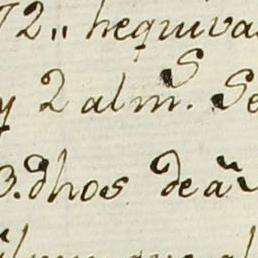 72,, hequiva
y 2 alm.s Se
3. dhos de añ